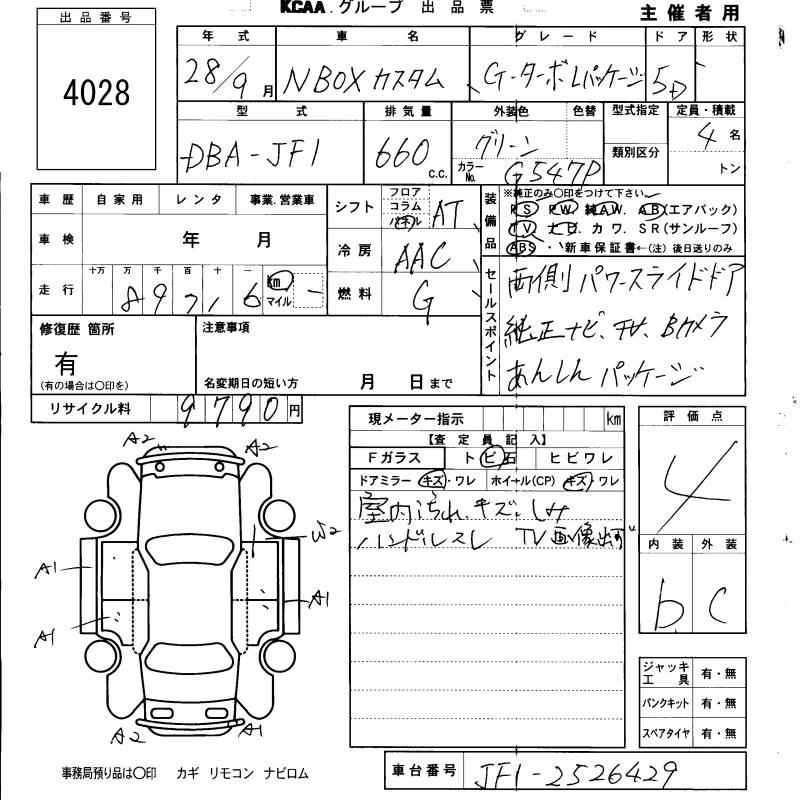 KCAA.グループ 出品票
主催者用
出品番号
4028
年式 車名 グレード ドア 形状
28/9月 NBOX カスタム G・ターボLパッケージ 5D
型式 排気量 外装色 色替 型式指定 定員・積載
DBA-JF1 660 c.c. グリーン 4名
類別区分
カラーNo. G547P トン
車歴 自家用 レンタ 事業.営業車
シフト フロア コラム パネル AT
装備品 ※純正のみ〇印をつけて下さい
PS PW 純AW. AB(エアバック)
TV. ナビ. カワ. SR(サンルーフ)
ABS ・ 新車保証書←(注)後日送りのみ
車検 年 月
冷房 AAC
走行 十万 万 千 百 十 一 km マイル
89716
燃料 G
セールスポイント
両側パワースライドドア
純正ナビ、TV、Bカメラ
あんしんパッケージ
修復歴 箇所
有
(有の場合は〇印を)
注意事項
名変期日の短い方 月 日まで
リサイクル料 9790円
現メーター指示 km
【査定員記入】
Fガラス トビ石 ヒビワレ
ドアミラー キズ・ワレ ホイール(CP) キズ・ワレ
室内汚れ、キズ、しみ
ハンドルスレ TV画像
評価点
4
内装 外装
b C
A2 A2
W2
A1
A1
A1
A2 A1
ジャッキ工具 有・無
パンクキット 有・無
スペアタイヤ 有・無
事務局預り品は〇印 カギ リモコン ナビロム
車台番号 JF1-2526429